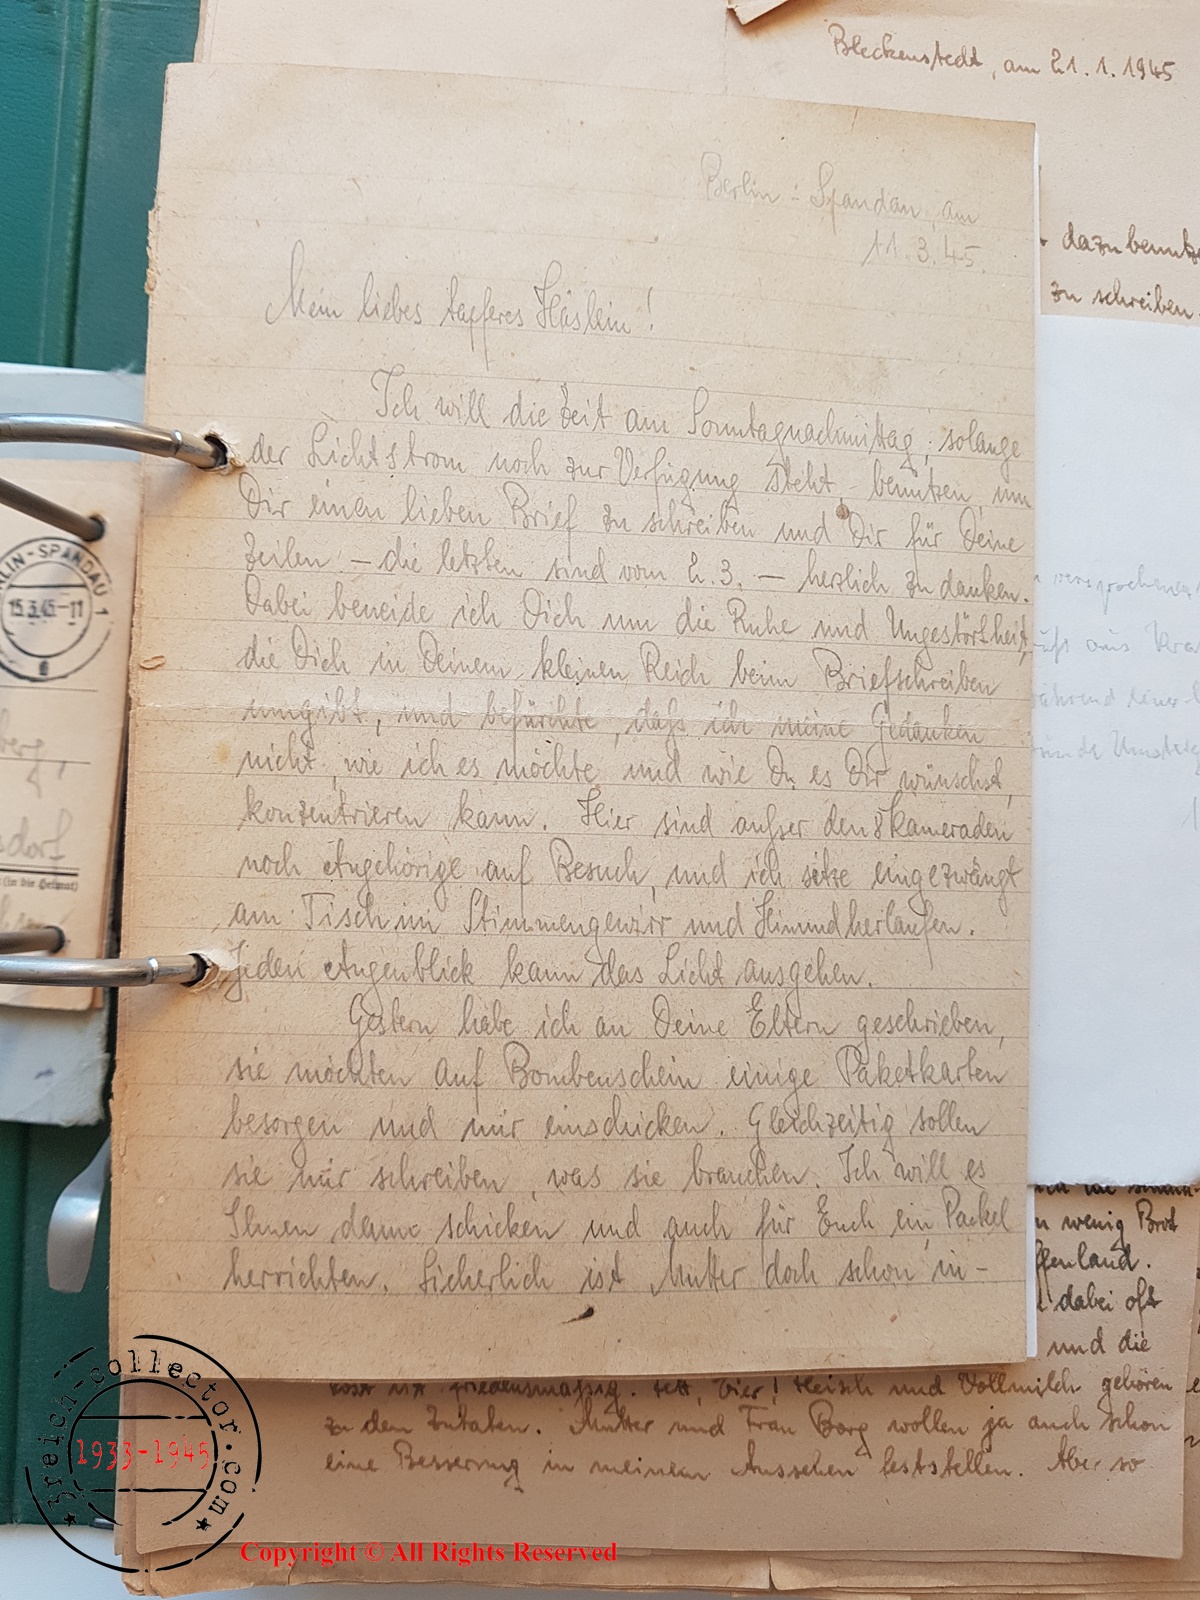 Bleckenstedt, am 21.1.1945
dazu benutze
zu schreiben.
Berlin-Spandau, am
11.3.45.
Mein liebes tapferes Häslein!
Ich will die Zeit am Sonntagnachmittag, solange
der Lichtstrom noch zur Verfügung steht, benützen, um
Dir einen lieben Brief zu schreiben und Dir für Deine
Zeilen – die letzten sind vom 2.3. – herzlich zu danken.
Dabei beneide ich Dich um die Ruhe und Ungestörtheit,
die Dich in Deinem kleinen Reich beim Briefschreiben
umgibt, und befürchte, daß ich meine Gedanken
nicht, wie ich es möchte und wie Du es Dir wünschst,
konzentrieren kann. Hier sind außer den 8 Kameraden
noch Angehörige auf Besuch, und ich sitze eingezwängt
am Tisch im Stimmengewirr und Hinundherlaufen.
Jeden Augenblick kann das Licht ausgehen.
Gestern habe ich an Deine Eltern geschrieben,
sie möchten auf Bombenschein einige Paketkarten
besorgen und mir einschicken. Gleichzeitig sollen
sie mir schreiben, was sie brauchen. Ich will es
Ihnen dann schicken und auch für Euch ein Packel
herrichten. Sicherlich ist Mutter doch schon in-
LIN-SPANDAU 1
15.3.45-11
berg,
sdorf
(in die Heimat)
versprochenen
aus
während
wenig Brot
dabei oft
und die
friedensmäßig. Fett, Eier! Fleisch und Vollmilch gehören
zu den Zutaten. Mutter und Frau Borg wollen ja auch schon
eine Besserung in meinem Aussehen feststellen. Aber so
3reich-collector.com
1933-1945
Copyright © All Rights Reserved